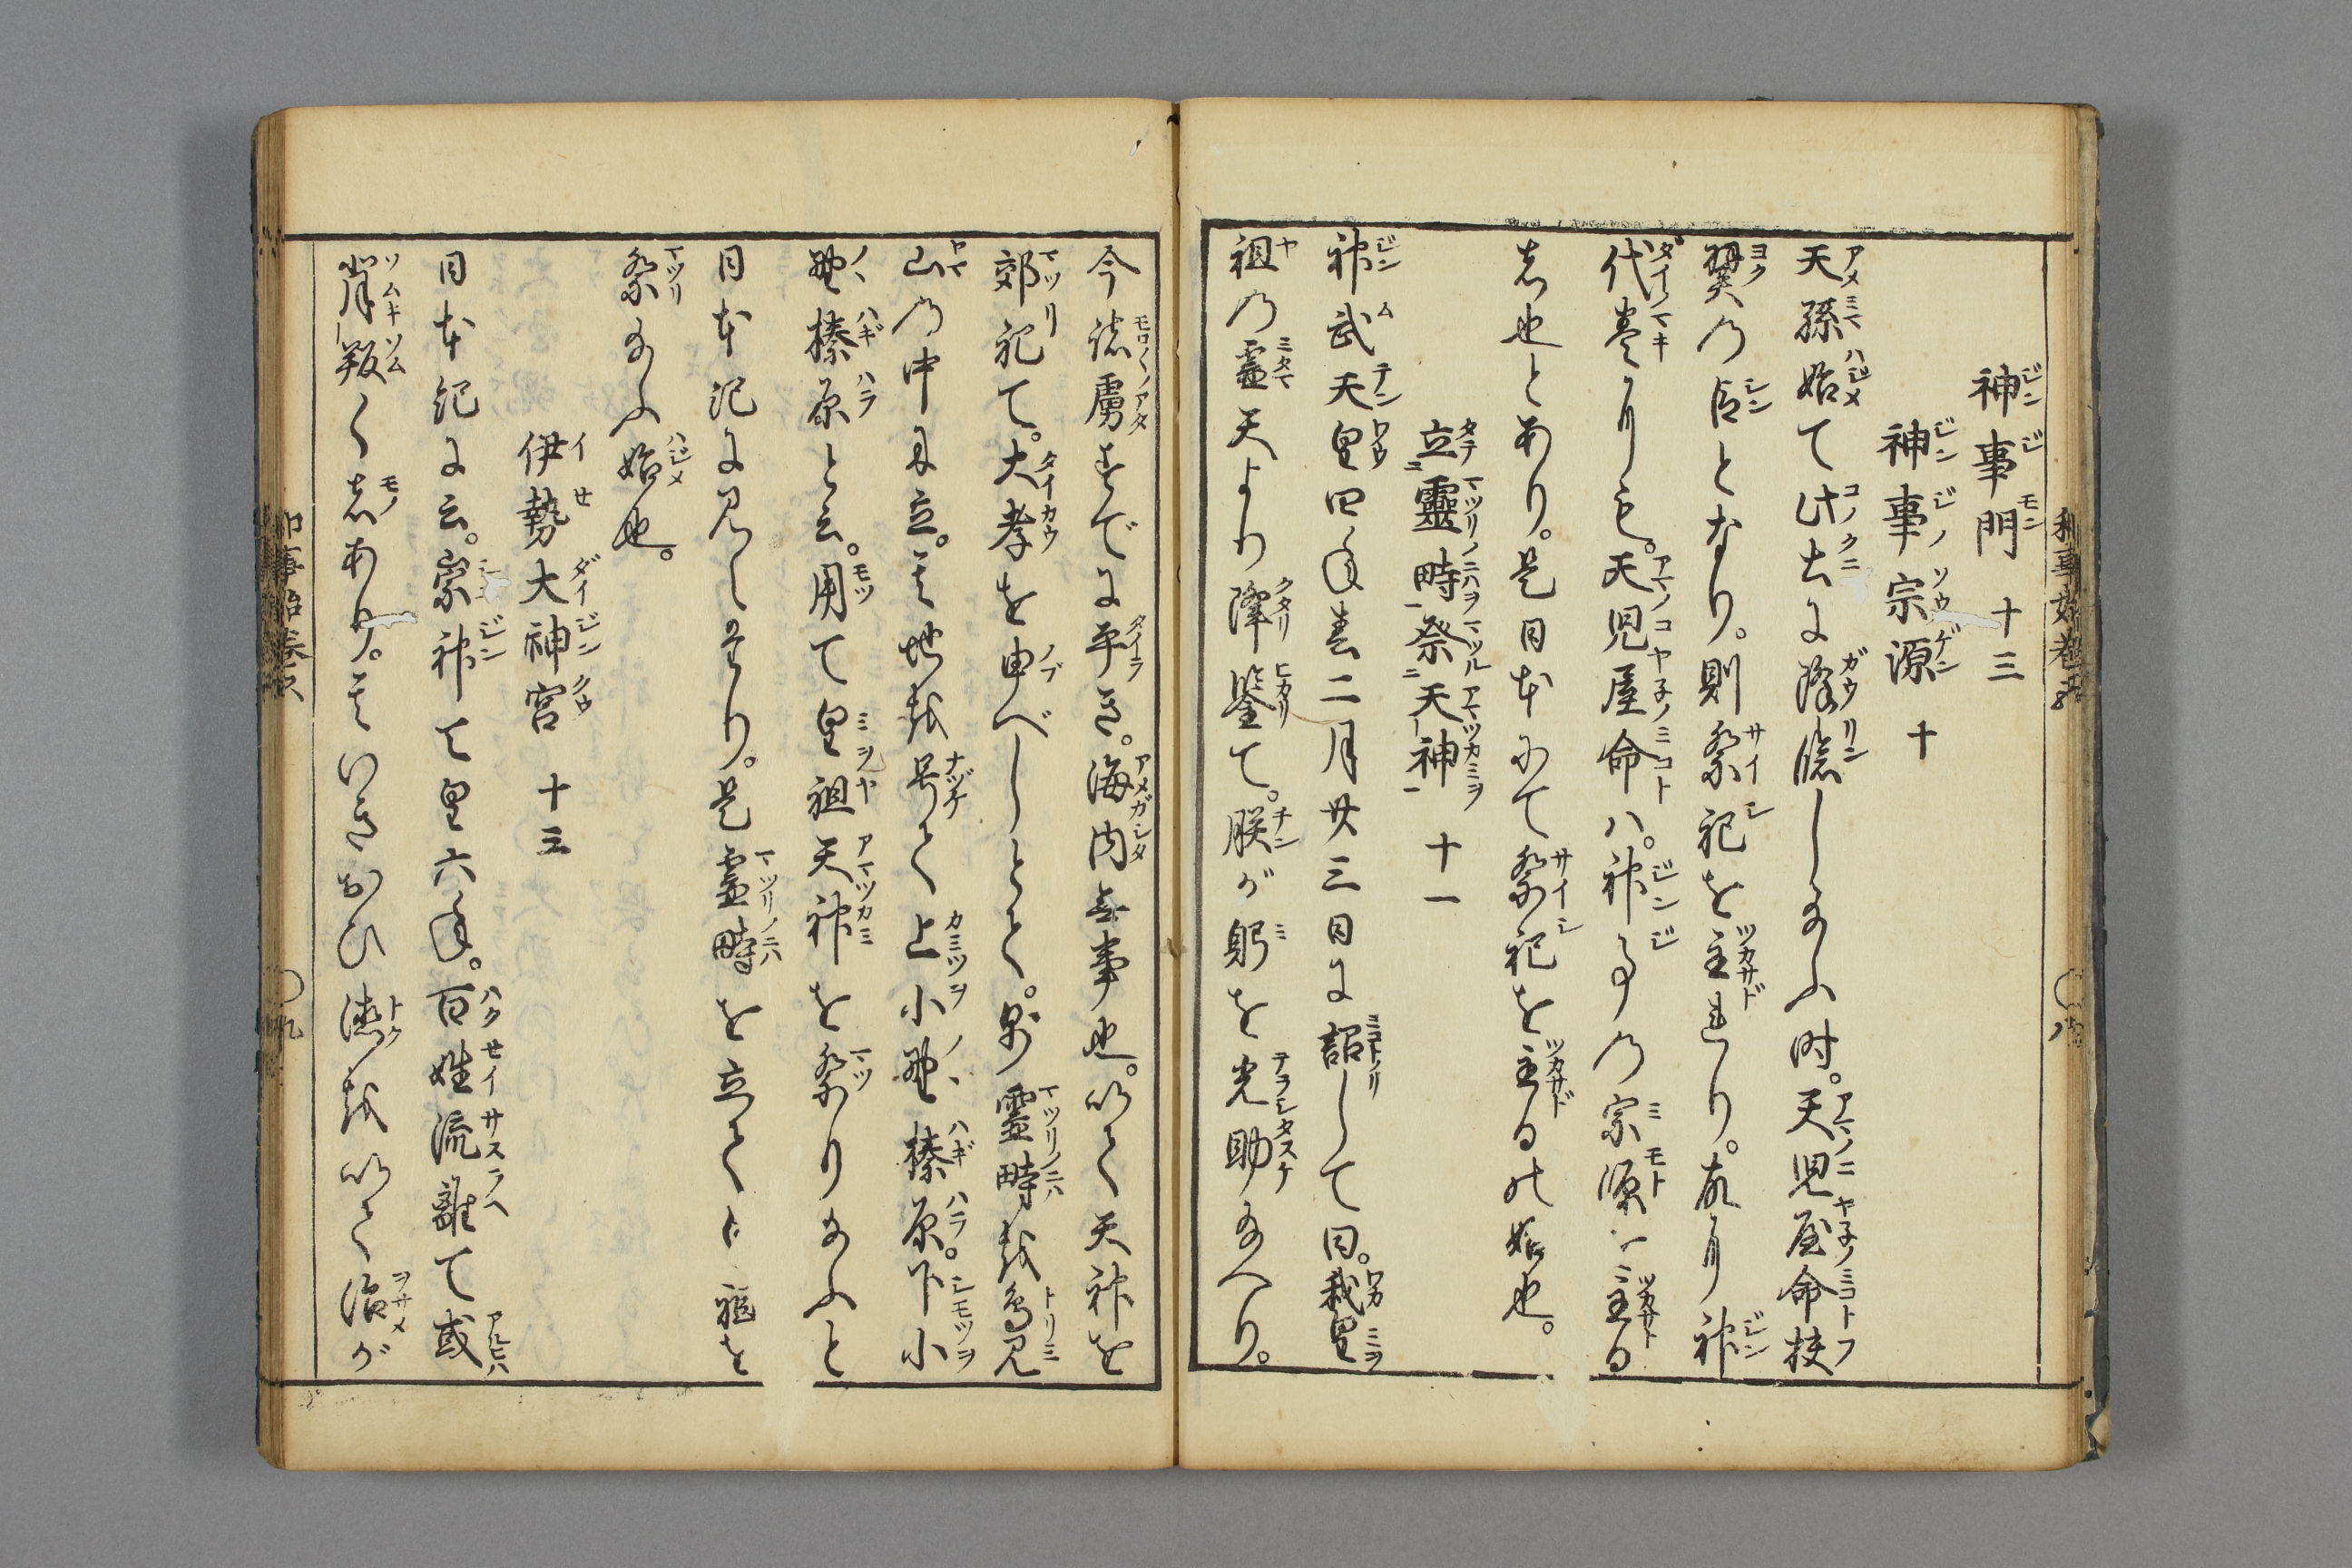 神事門 十三
神事宗源 十
天孫始て此土に降臨し給ふ時。天児屋命扶
翼の臣となり。則祭祀を主れり。故に神
代巻に も。天児屋命ハ。神事の宗源を主る
者也とあり。是日本にて祭祀を主るの始也。
立靈畤祭天神 十一
神武天皇四年春二月廿三日に詔して曰。我皇
祖の霊天より降鑒て。朕が躬を光助給へり。
今諸虜すでに平き。海内無事也。以て天神を
郊祀て。大孝を申べしとて。乃霊畤を鳥見
山の中に立。其地を号て上小野榛原。下小
野榛原と云。用て皇祖天神を祭り給ふと
日本記に見へたり。是霊畤を立て 祖を
祭給ふ始也。
伊勢大神宮 十三
日本紀に云。崇神天皇六年。百姓流離て或
背叛く者あり。其いきおひ徳を以て治が